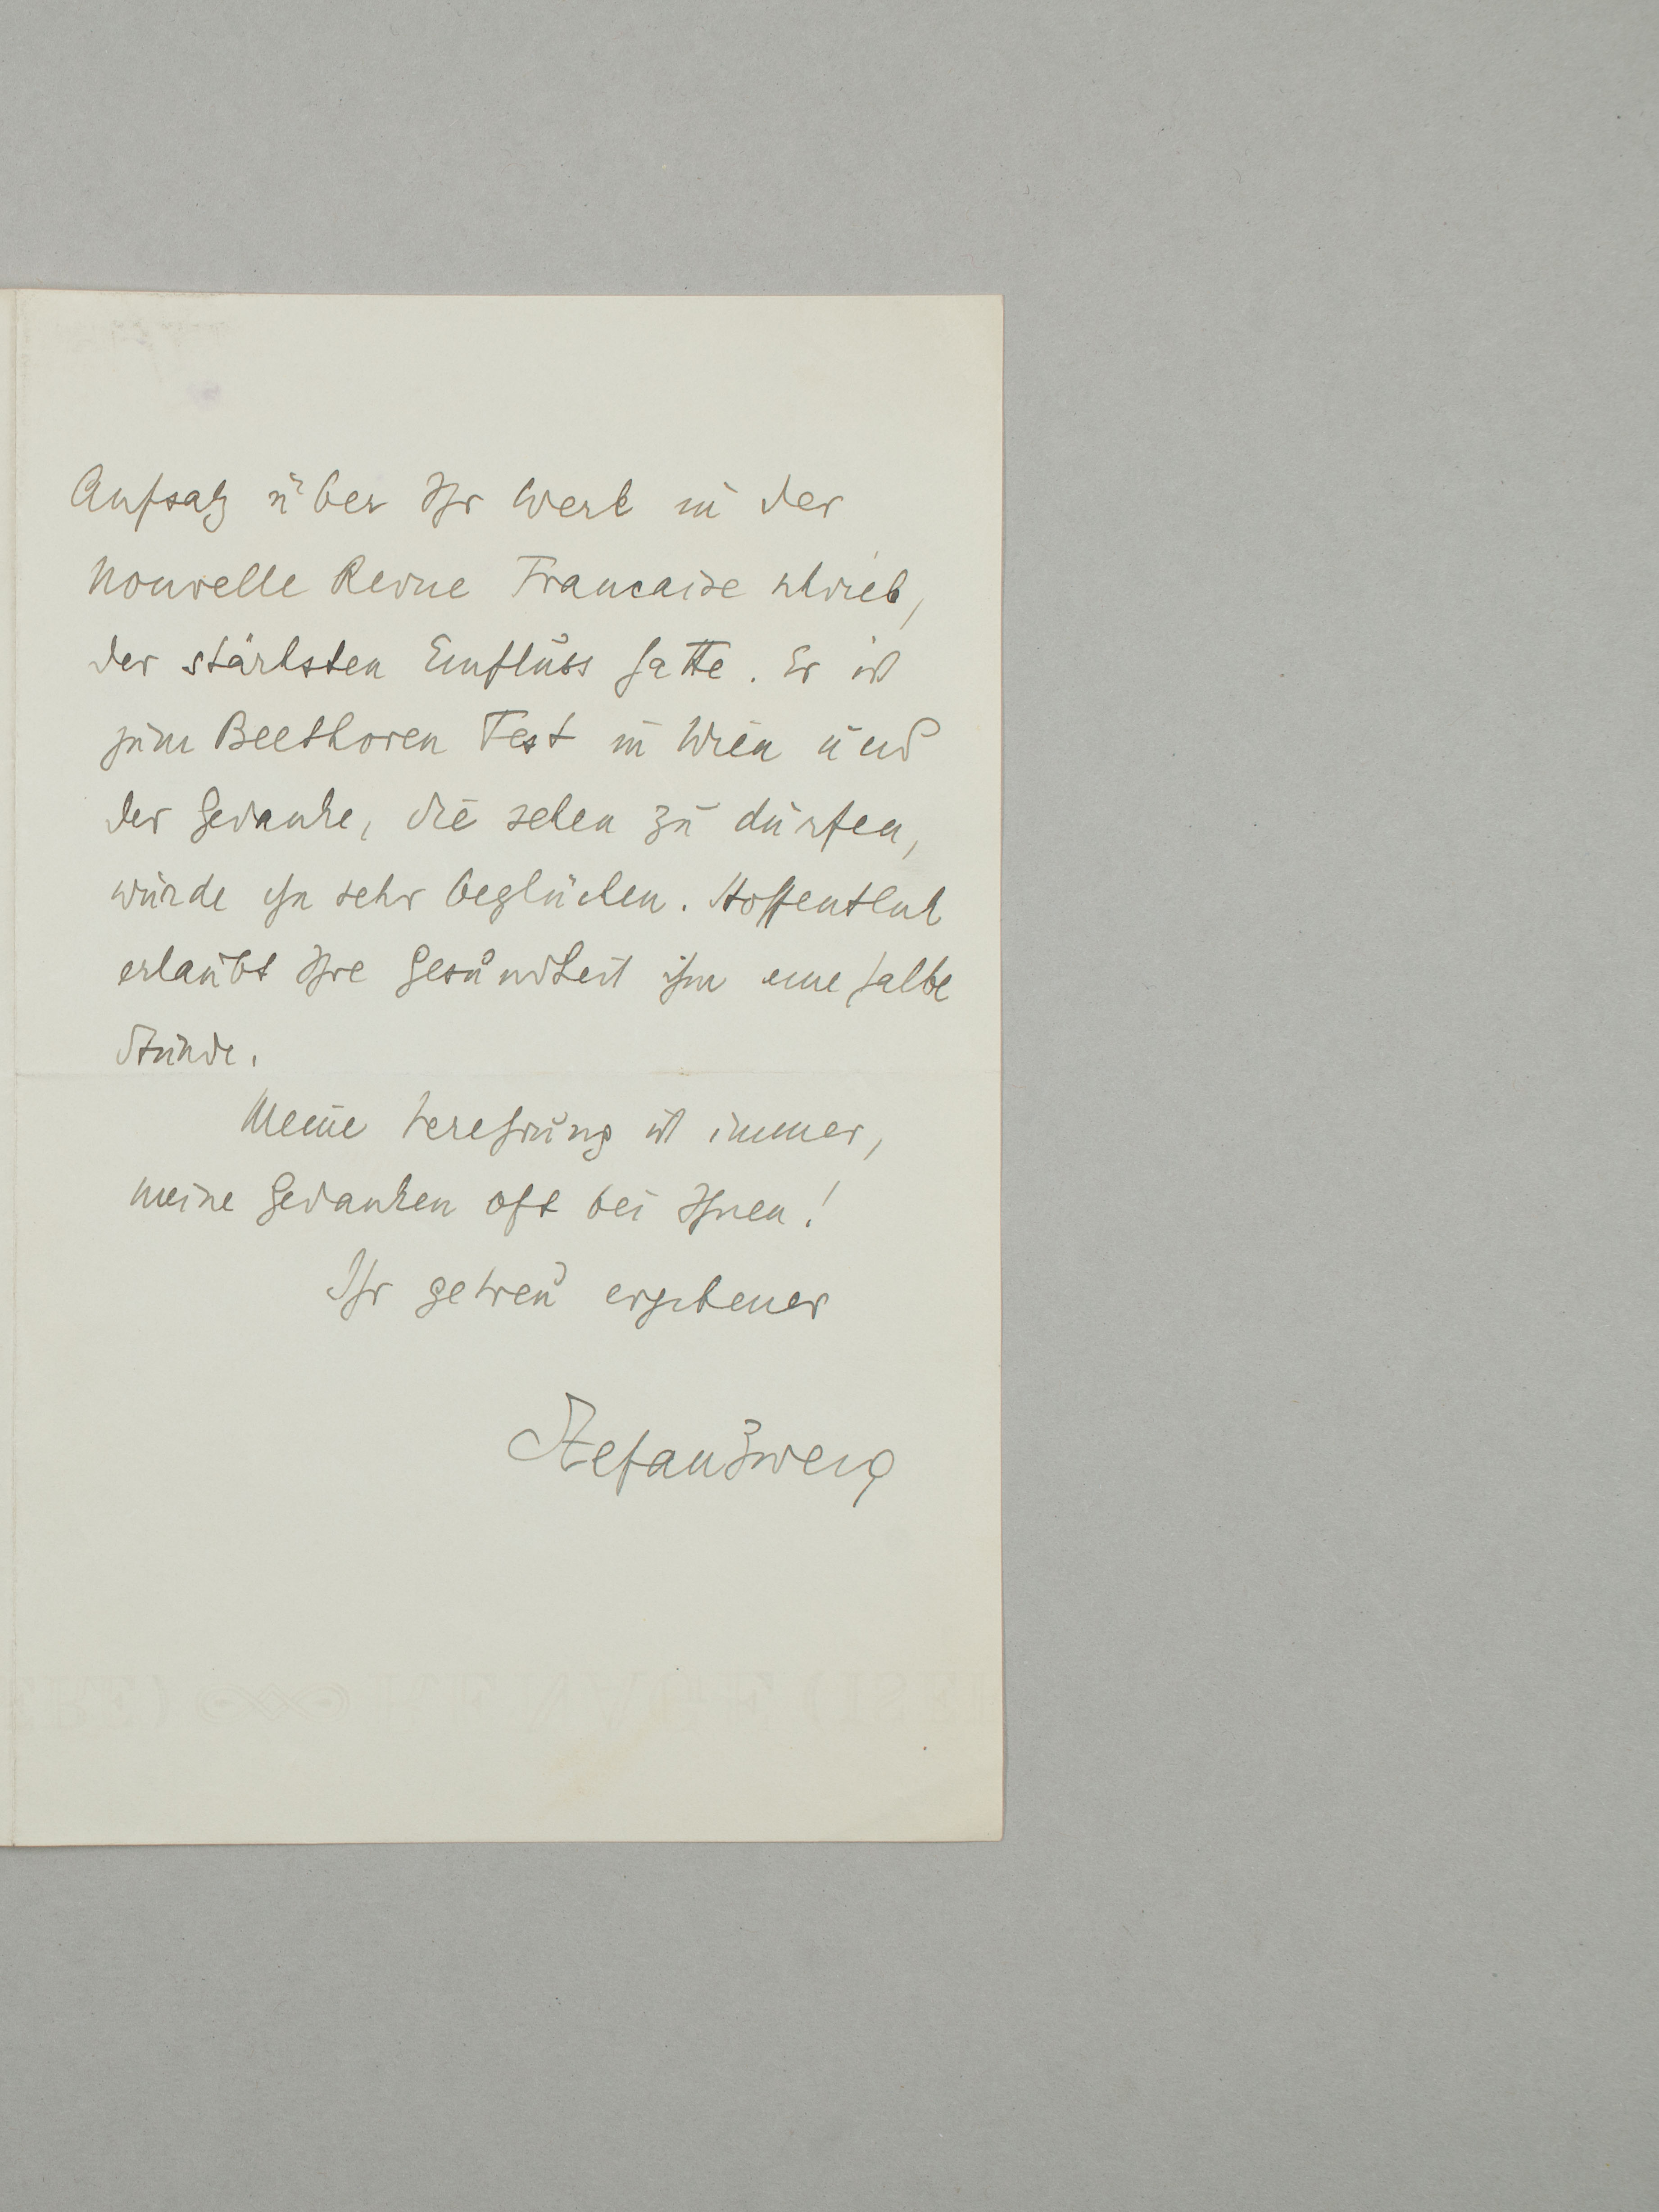 Aufsatz über Ihr Werk in der
Nouvelle Revue Francaise schrieb,
der stärksten Einfluss hatte. Er ist
zum Beethoven Fest in Wien und
der Gedanke, Sie sehen zu dürfen,
würde ihn sehr beglücken. Hoffentlich
erlaubt Ihre Gesundheit ihm eine halbe
Stunde.
Meine Verehrung ist immer,
meine Gedanken oft bei Ihnen!
Ihr getreu ergebener
Stefan Zweig